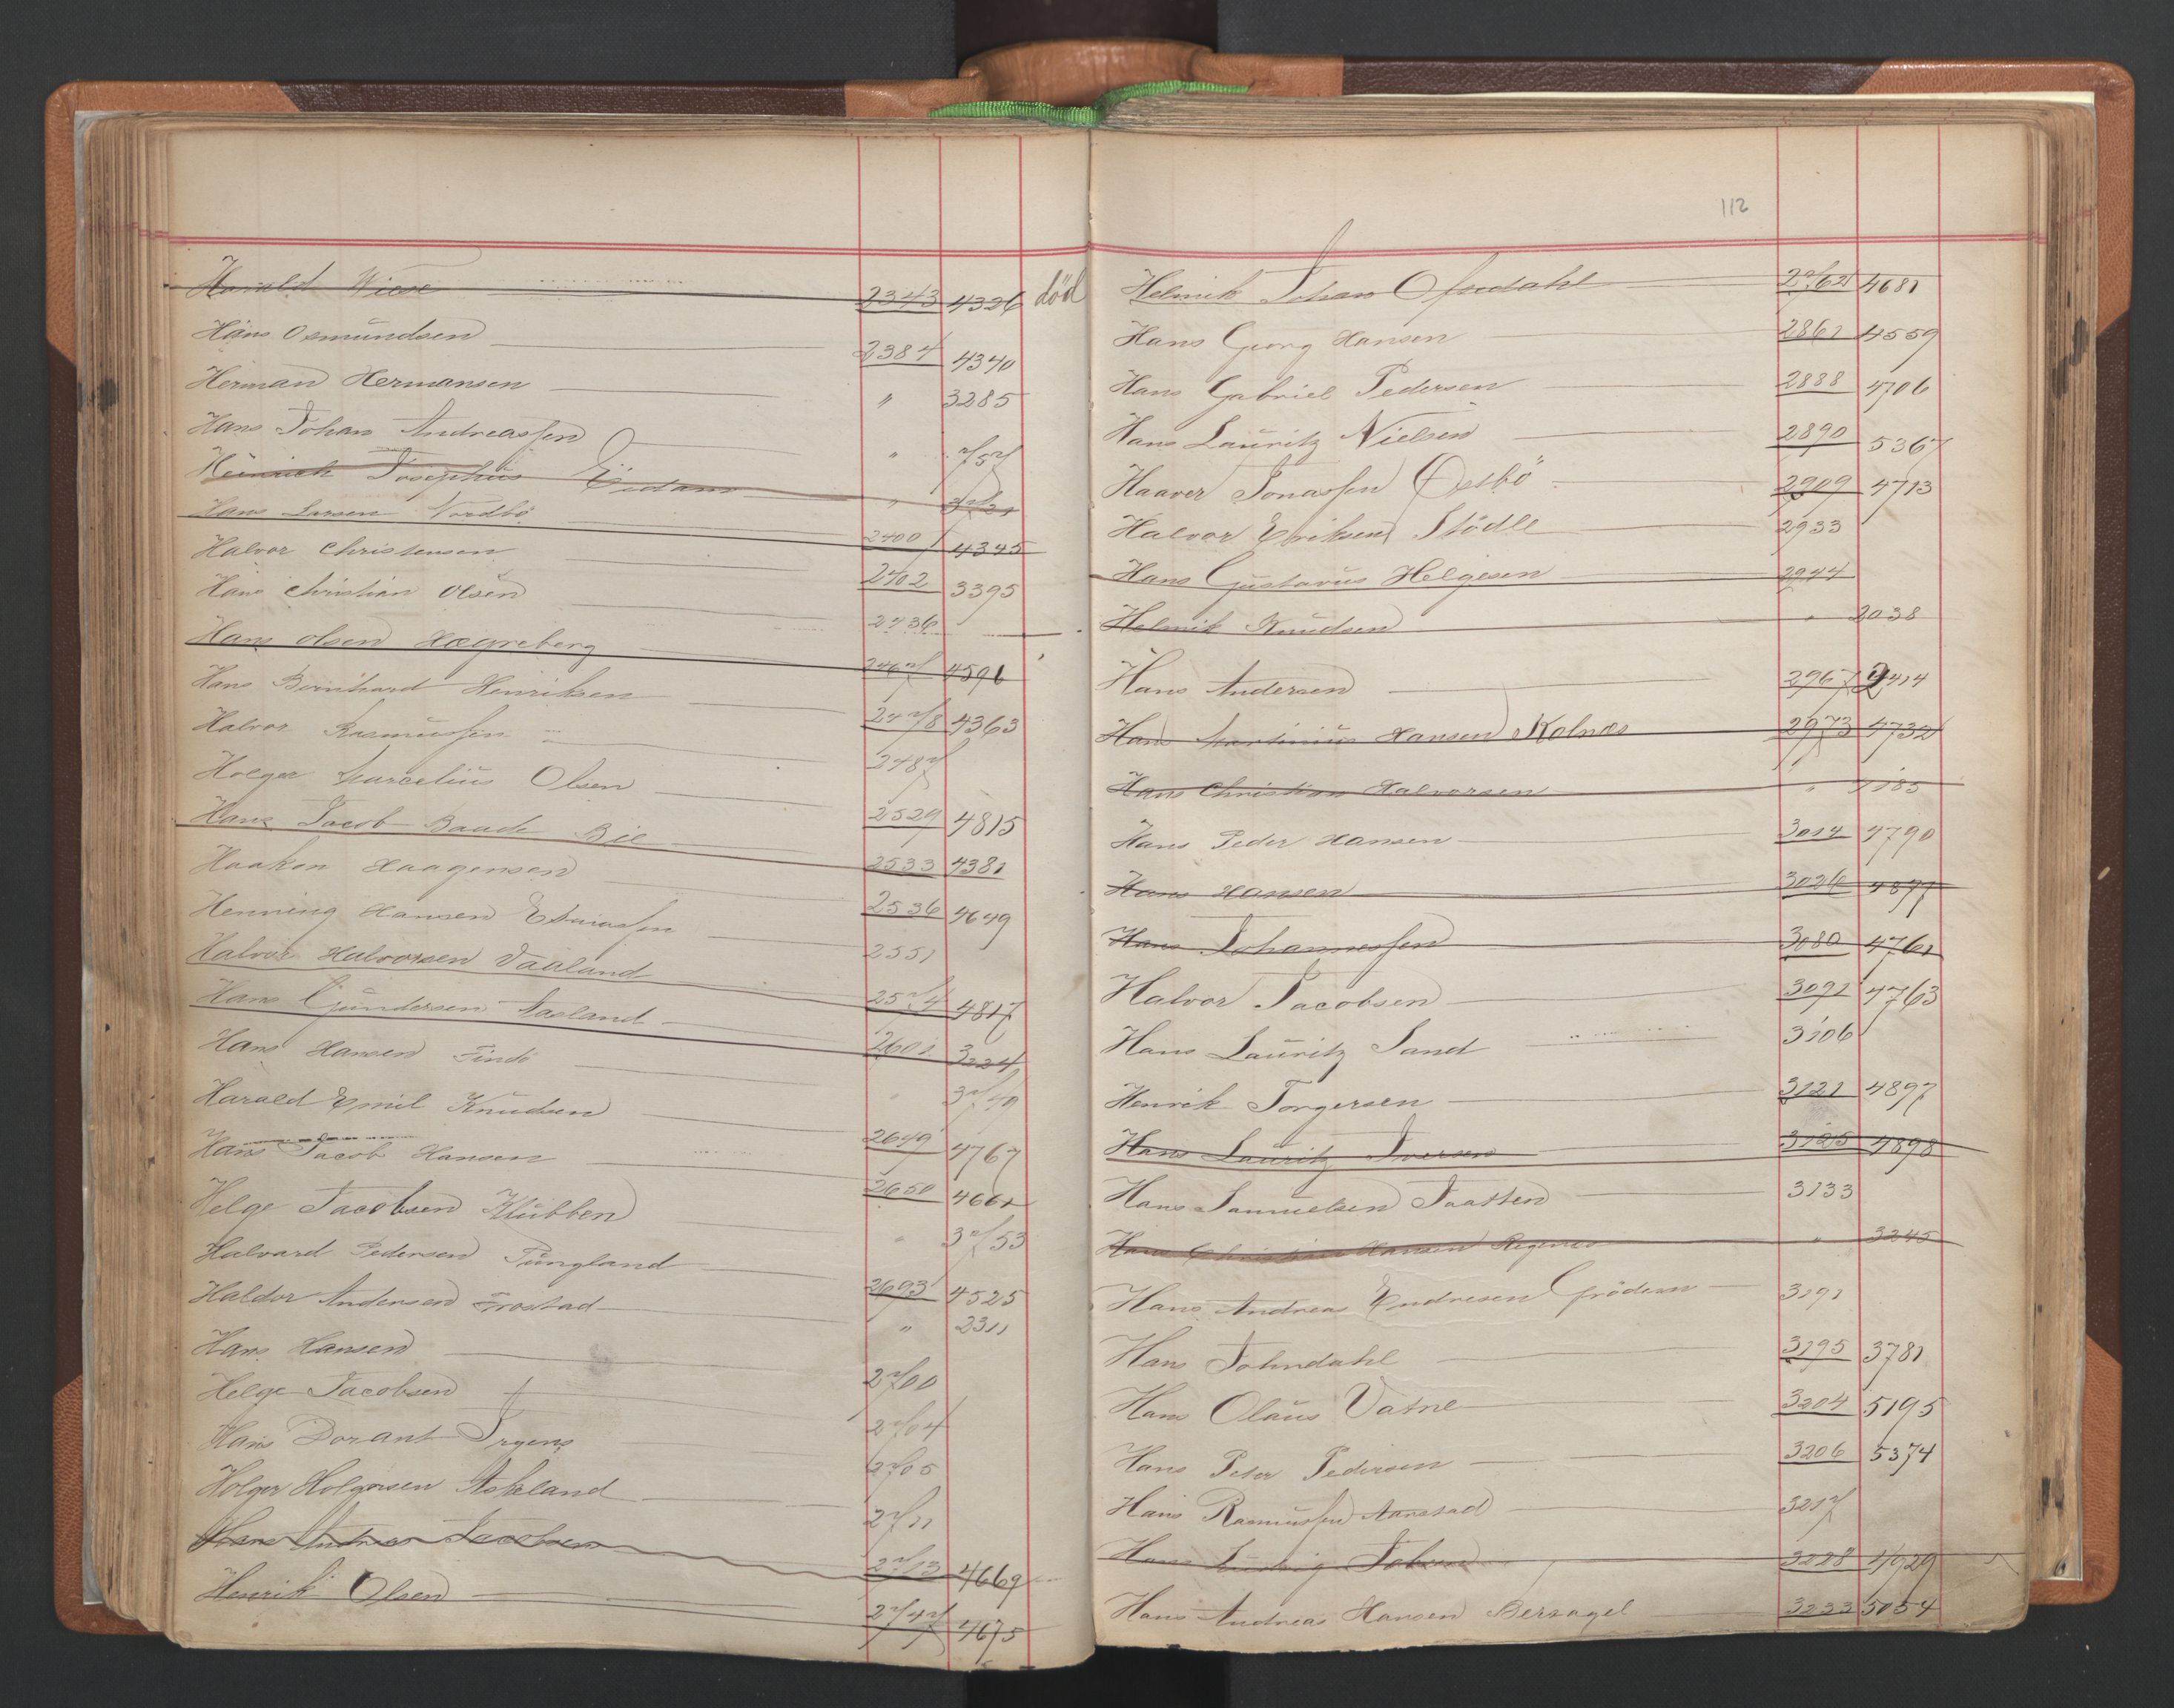 Harald Wiese 2343 4326 död
Hans Osmundsen 2384 4340
Herman Hermansen " 3285
Hans Johan Andreassen " 757
Heinrich Josephus Eidam "
Hans Larsen Nordbö 2400 4345
Halvor Christensen 2402 3395
Hans Christian Olsen 2436
Hans Olsen Hægreberg 2467 4591
Hans Bernhard Henriksen 2478 4363
Halvor Rasmussen 2487
Holger Marcelius Olsen 2529 4815
Hans Jacob Baade Bie 2533 4381
Haaken Haagensen 2536 4649
Henning Hansen 2551
Halvor Halvorsen Vaaland 2574 4817
Hans Gundersen Aasland 2601 3224
Hans Hansen Findö " 3749
Harald Emil Knudsen 2649 4767
Hans Jacob Hansen 2650 4661
Helge Jacobsen Klubben " 3753
Halvard Pedersen Pungland 2693 4525
Haldor Andersen Frostad " 2311
Hans Hansen 2700
Helge Jacobsen 2704
Hans Dorant Irgens 2705
Holger Holgersen Askland 2711
Hans Andreas Jacobsen 2713 4669
Henrik Olsen 2747 4675
112
Helmik Johan Ofsedahl 2762 4681
Hans Georg Hansen 2861 4559
Hans Gabriel Pedersen 2888 4706
Hans Lauritz Nielsen 2890 5367
Haaver Jonassen Östbö 2909 4713
Halvor Eriksen Stödle 2933
Hans Gustavus Helgesen 2944
Helmik Knudsen " 2038
Hans Andersen 2967 2414
Hans Martinius Hansen Kolnes 2973 4732
Hans Christian Halvorsen " 2185
Hans Peder Hansen 3014 4790
Hans Hansen 3026 4877
Hans Johannessen 3080 4761
Halvor Jacobsen 3091 4763
Hans Lauritz Sand 3106
Henrik Torgersen 3121 4897
Hans Lauritz Iversen 3125 4898
Hans Samuelsen Taatten 3133
Hans Christian Hansen " 3245
Hans Andreas Endresen Grödem 3191
Hans Johndahl 3195 3781
Hans Olaus Vatne 3204 5195
Hans Peter Pedersen 3206 5374
Hans Rasmussen Aarstad 3217
Hans Ludvig 3228 4929
Hans Andreas Hansen Bersagel 3233 5054